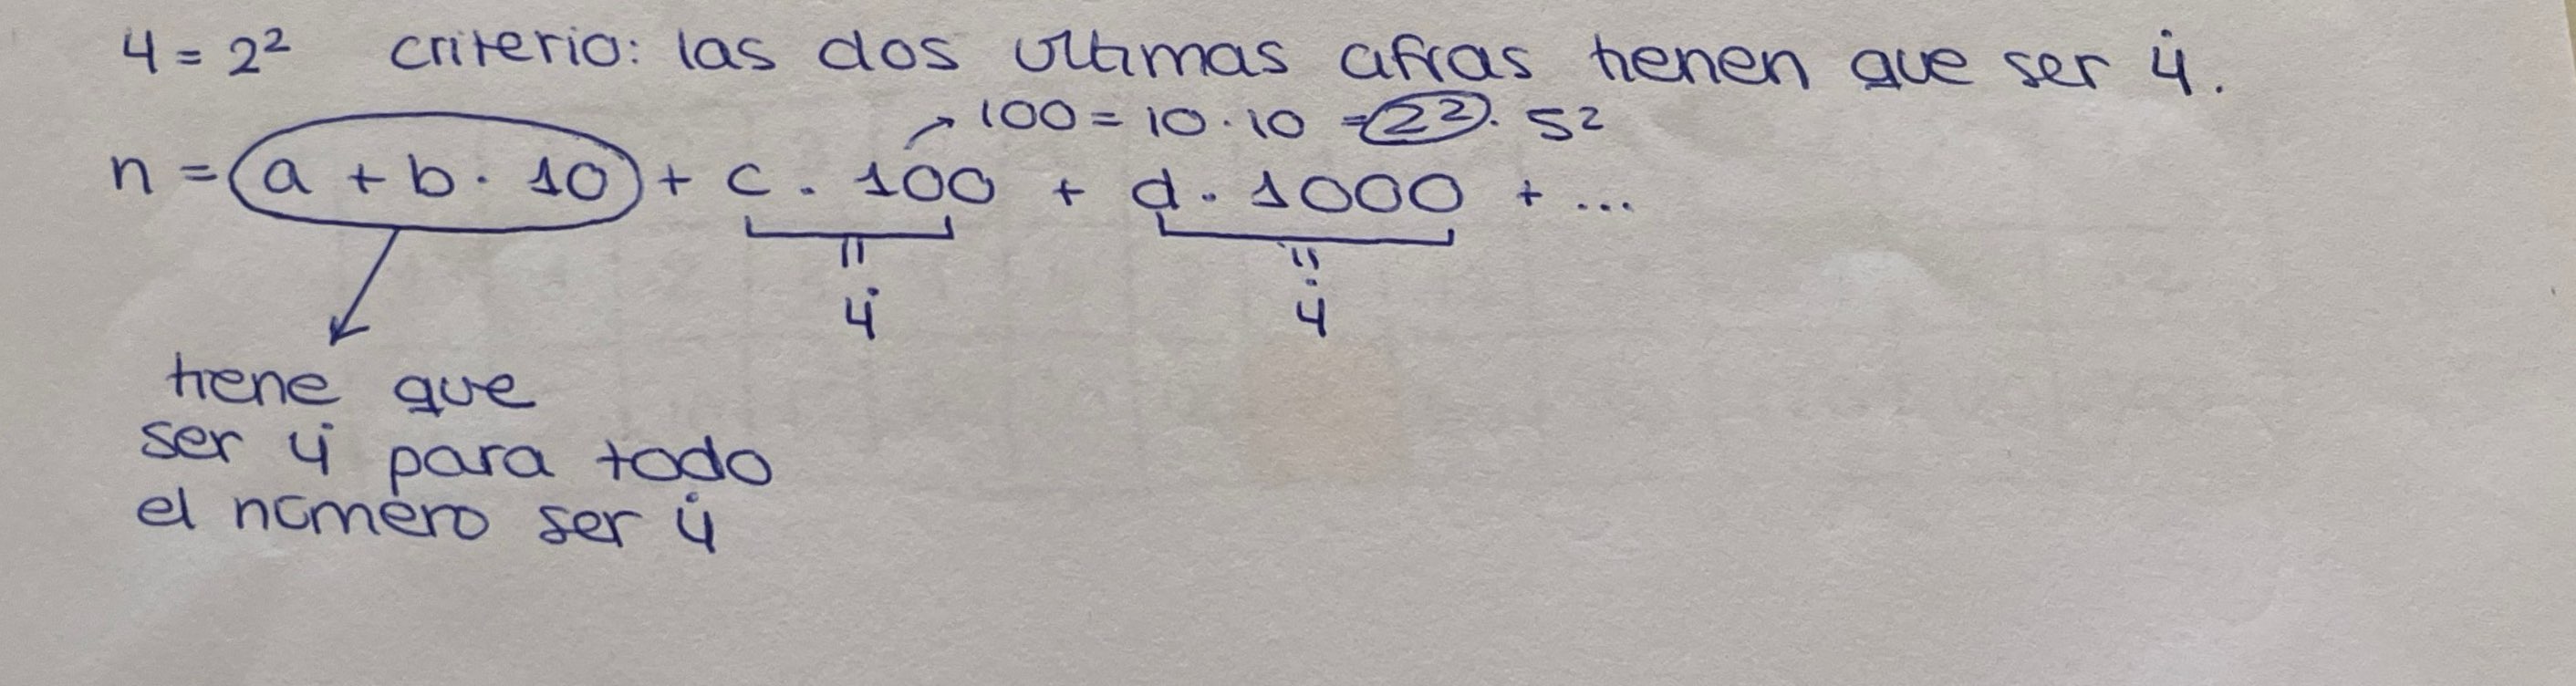 4 = 2² criterio: las dos ultimas cifras tienen que ser 4̇.
100 = 10 · 10 = 2² · 5²
n = a + b · 10 + c · 100 + d · 1000 + ...
4̇ 4̇
tiene que
ser 4̇ para todo
el número ser 4̇